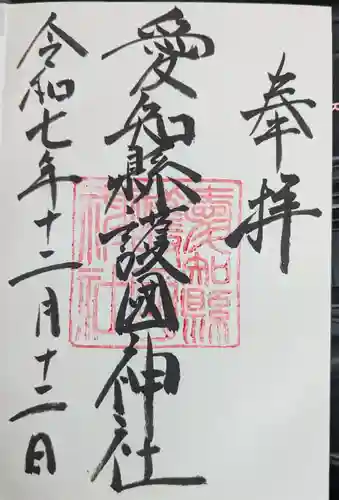 奉拝
愛知縣護國神社
愛知縣護國神社
令和七年十二月十二日